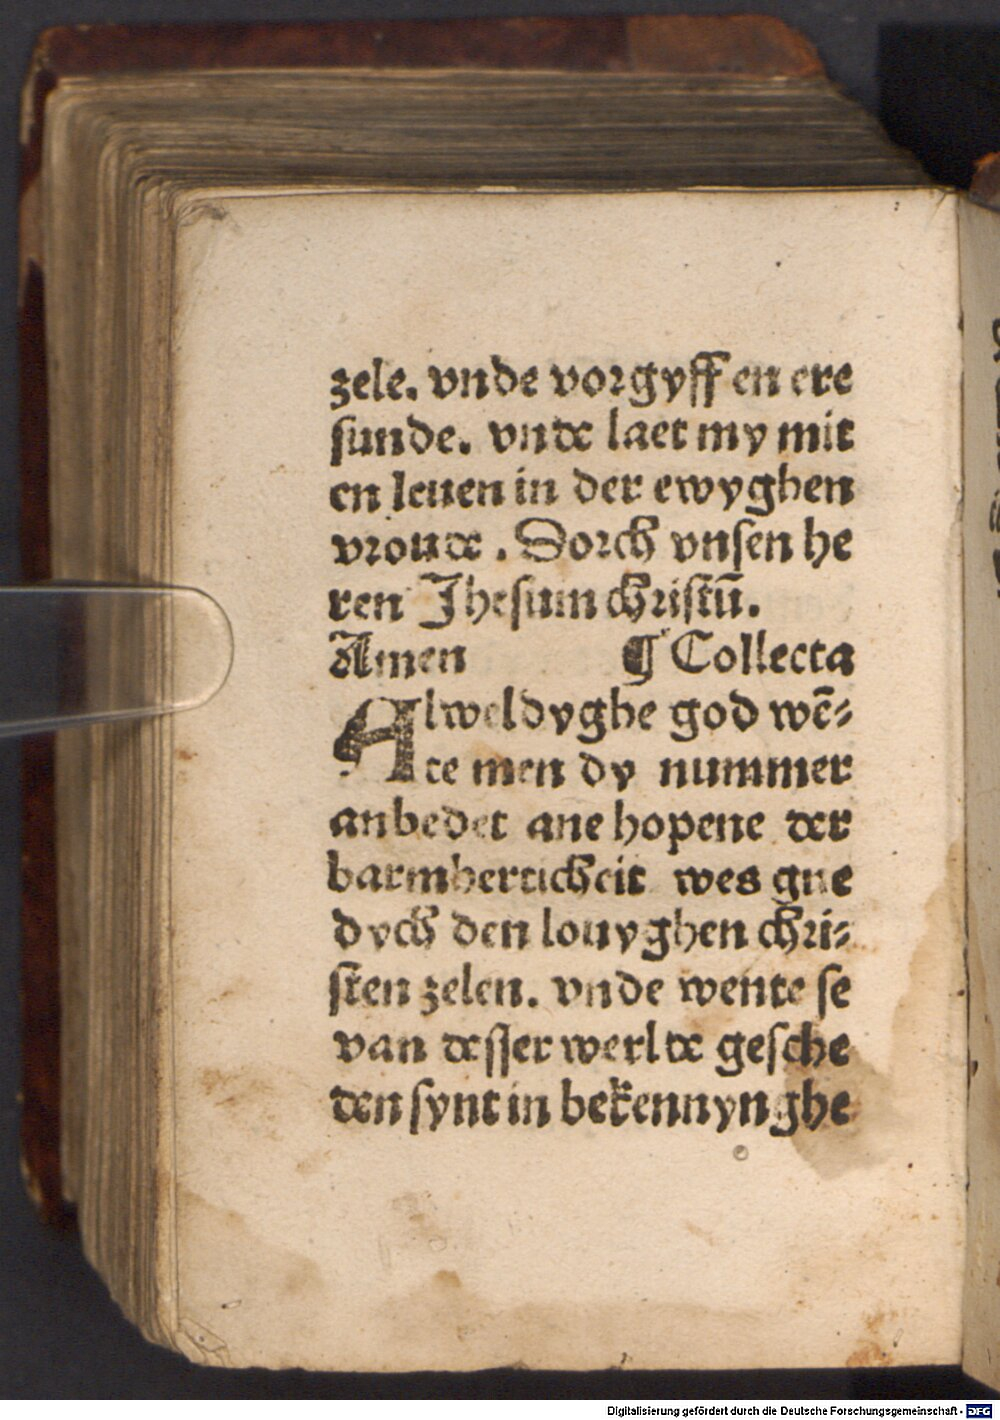 zele. vnde vorgyff en ere
sunde. vnde laet my mit
en leuen in der ewyghen
vroude. Dorch vnsen he
ren Jhesum christū.
Amen ¶ Collecta
Alweldyghe god wē⸗
te men dy nummer
anbedet ane hopene der
barmherticheit wes gne
dych den louyghen chri⸗
sten zelen. vnde wente se
van desser werlde gesche
den synt in bekennynghe
Digitalisierung gefördert durch die Deutsche Forschungsgemeinschaft - DFG